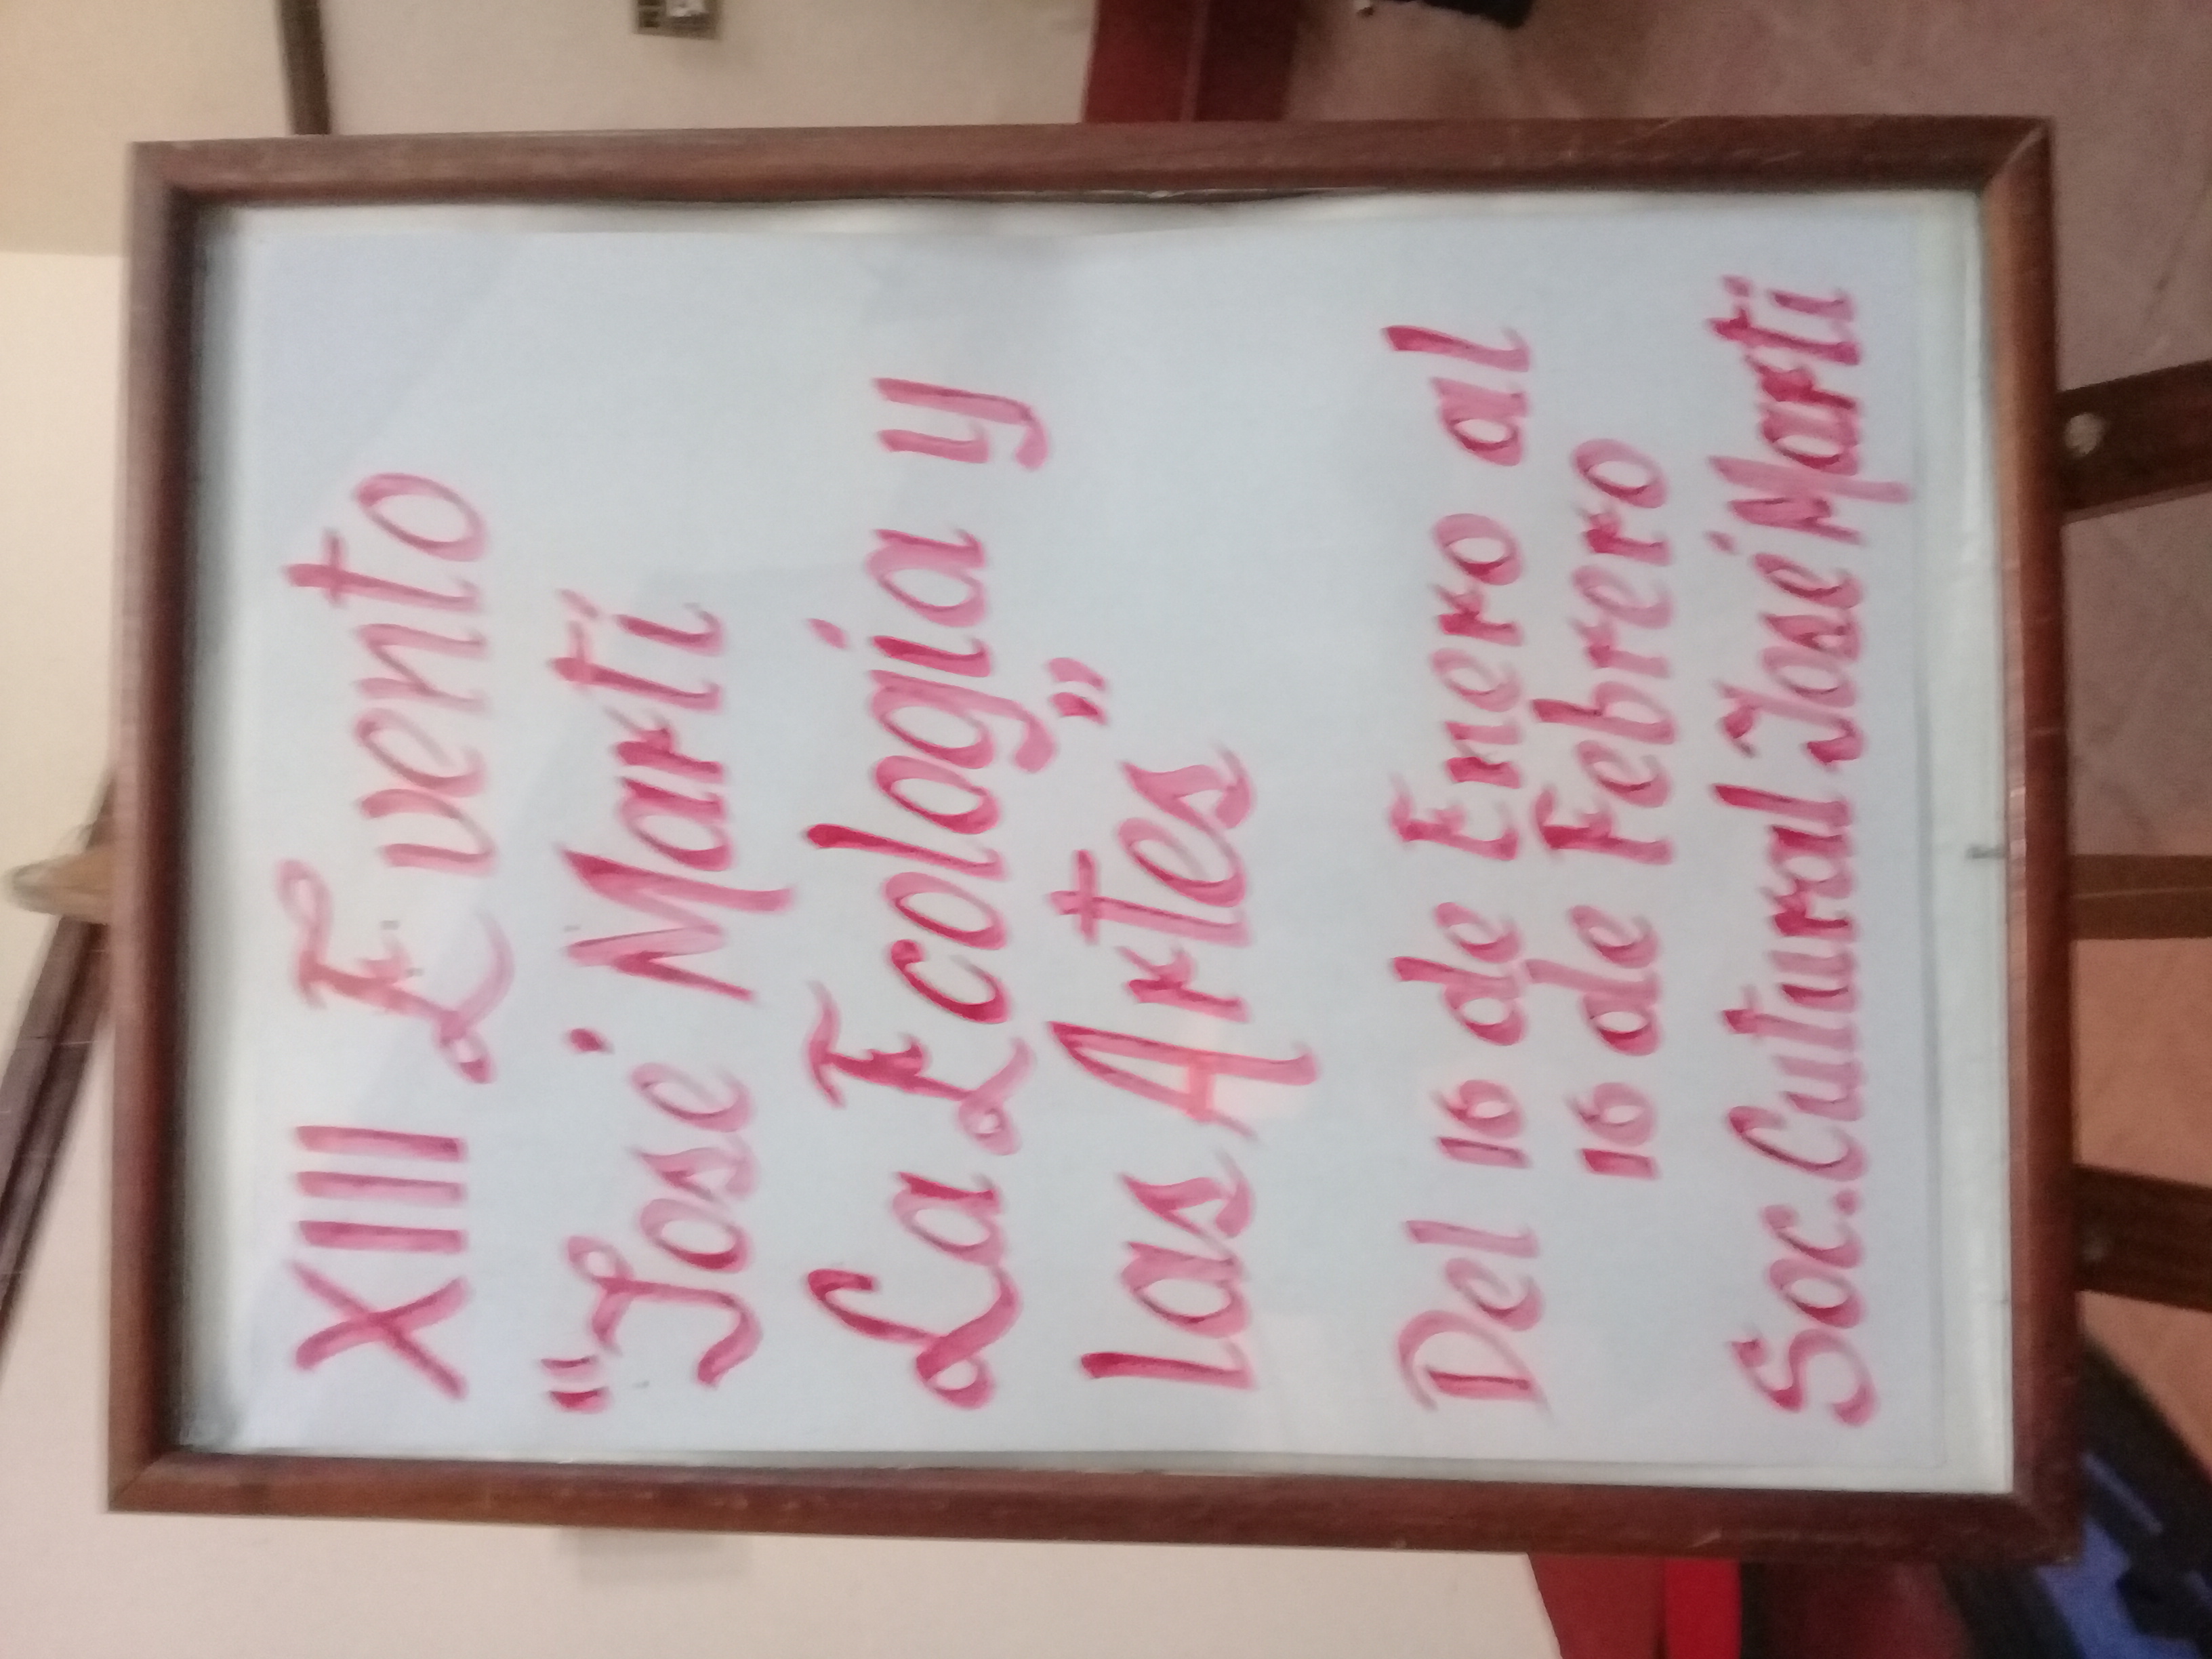 XIII Evento
"José Martí
La Ecología y
las Artes"
Del 16 de Enero al
16 de Febrero
Soc. Cutural José Martí